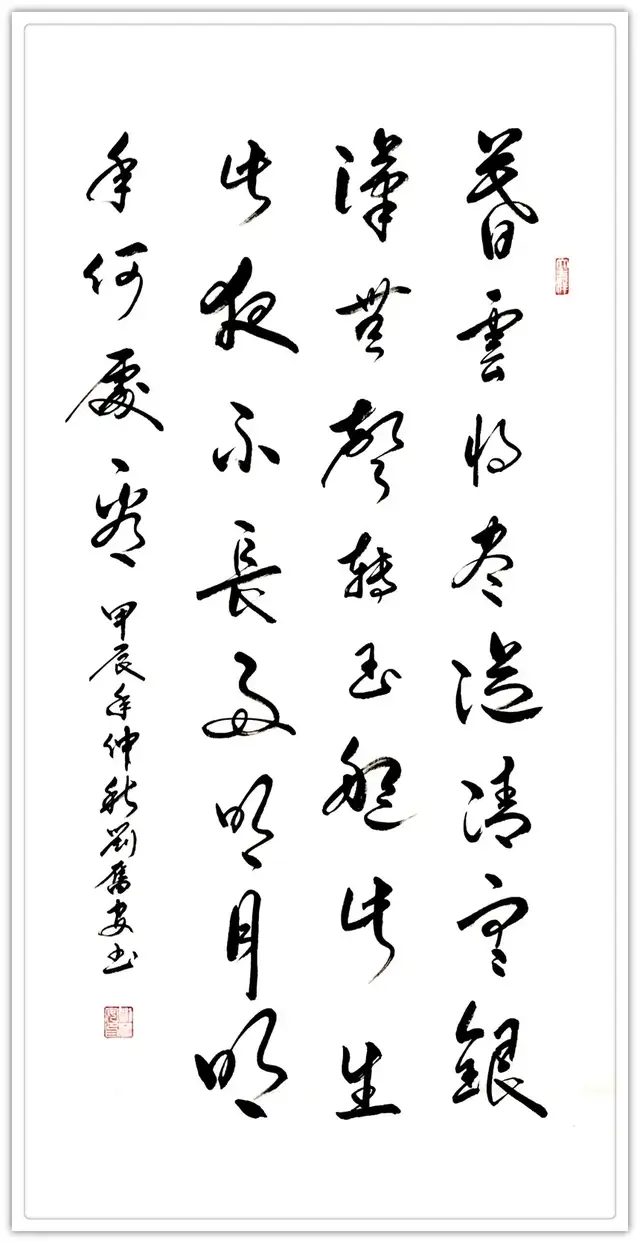 暮雲收盡溢清寒銀
漢無聲轉玉盤此生
此夜不長好明月明
年何處看
甲辰年仲秋劉奮安書